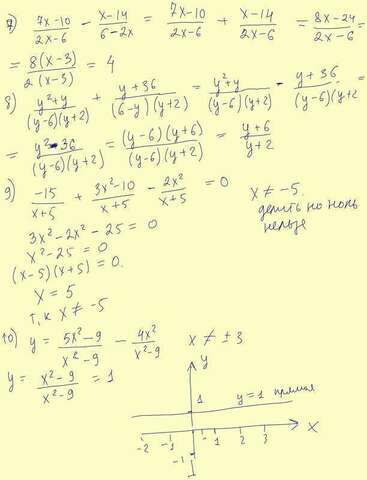 7) (7x-10)/(2x-6) - (x-14)/(6-2x) = (7x-10)/(2x-6) + (x-14)/(2x-6) = (8x-24)/(2x-6) =
= 8(x-3)/2(x-3) = 4
8) (y²+y)/(y-6)(y+2) + (y+36)/(6-y)(y+2) = (y²+y)/(y-6)(y+2) - (y+36)/(y-6)(y+2 =
= (y²-36)/(y-6)(y+2) = (y-6)(y+6)/(y-6)(y+2) = (y+6)/(y+2)
9) -15/(x+5) + (3x²-10)/(x+5) - 2x²/(x+5) = 0 x ≠ -5.
делить но ноль
нельзя
3x²-2x²-25=0
x²-25=0
(x-5)(x+5)=0.
x=5
т,к x≠-5
10) y = (5x²-9)/(x²-9) - 4x²/(x²-9) x ≠ ±3
y = (x²-9)/(x²-9) = 1
y
1 y=1 прямая
-2 -1 1 2 3 x
-1